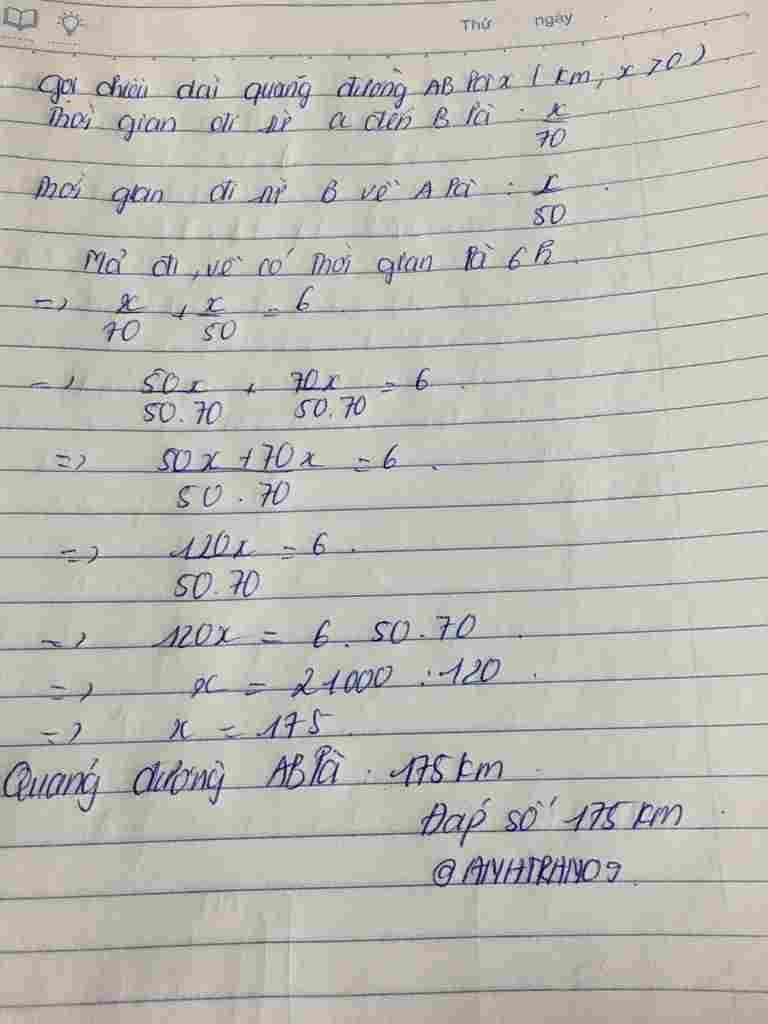 Thứ ngày
Gọi chiều dài quãng đường AB là x (km, x>0)
Thời gian đi từ a đến B là : x/70
Thời gian đi từ B về A là : x/50
Mà đi, về có thời gian là 6h.
=> x/70 + x/50 = 6
=> 50x/50.70 + 70x/50.70 = 6
=> 50x+70x/50.70 = 6
=> 120x/50.70 = 6
=> 120x = 6.50.70
=> x = 21000 : 120
=> x = 175
Quãng đường AB là : 175km
Đáp số 175 km
@ANHTRAN09